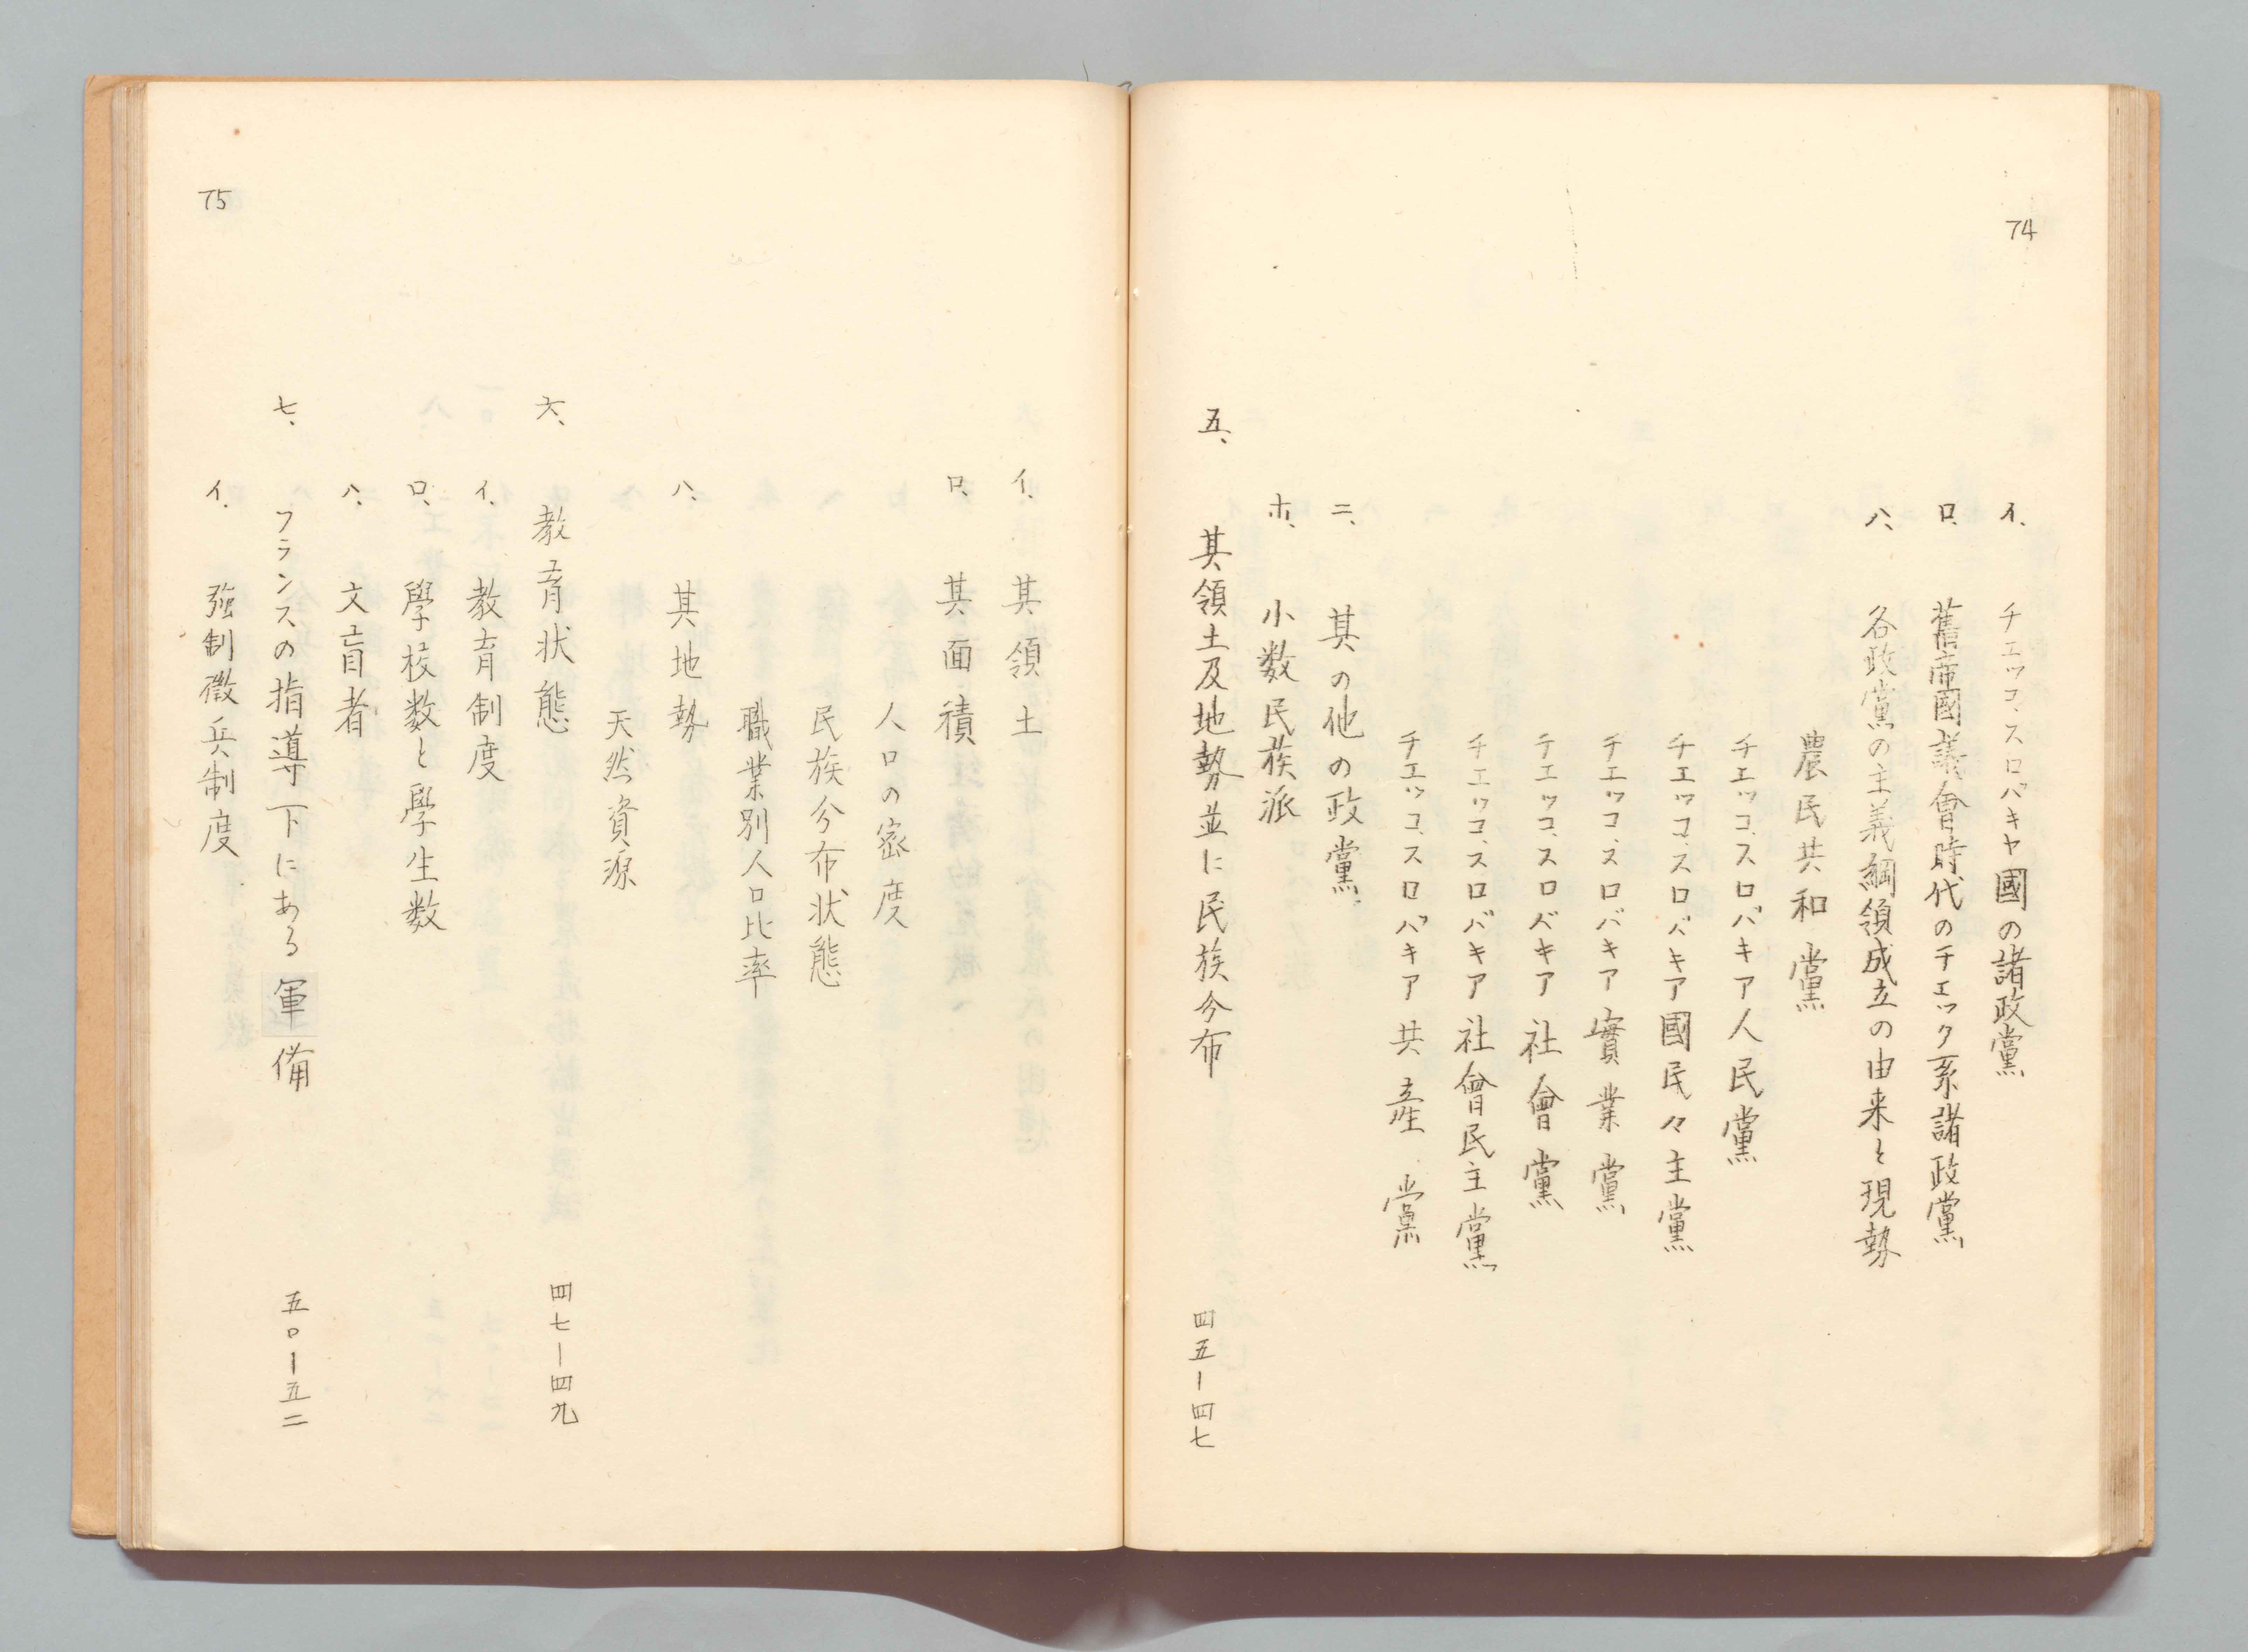 74
イ、チエツコ、スロバキヤ國の諸政黨
ロ、舊帝國議會時代のチエツク系諸政黨
ハ、各政黨の主義綱領成立の由来と現勢
農民共和黨
チエツコ、スロバキア人民黨
チエツコ、スロバキア國民々主黨
チエツコ、スロバキア實業黨
チエツコ、スロバキア社會黨
チエツコ、スロバキア社會民主黨
チエツコ、スロバキア共產黨
ニ、其の他の政黨
ホ、小数民族派
五、其領土及地勢並に民族分布 四五ー四七
75
イ、其領土
ロ、其面積
人口の密度
民族分布状態
職業別人口比率
ハ、其地勢
天然資源
六、教育状態 四七ー四九
イ、教育制度
ロ、學校数と學生数
ハ、文盲者
七、フランスの指導下にある軍備 五〇ー五二
イ、強制徴兵制度